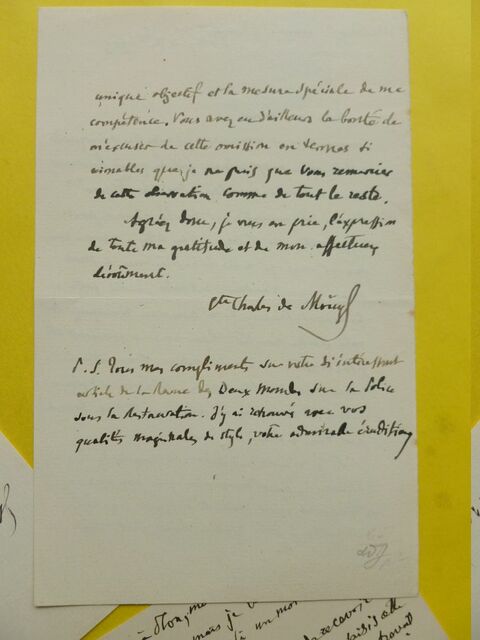 unique objectif et la mesure spéciale de ma
compétence. Vous avez eu d'ailleurs la bonté de
m'excuser de cette omission en termes si
aimables que je ne puis que vous remercier
de cette observation comme de tout le reste.
Agréez donc, je vous en prie, l'expression
de toute ma gratitude et de mon affectueux
dévouement.
Cte Charles de Moüy
P. S. Tous mes compliments sur votre si intéressant
article de la Revue des Deux Mondes sur la Police
sous la Restauration. J'y ai retrouvé avec vos
qualités magistrales de style, votre admirable érudition
recevoir